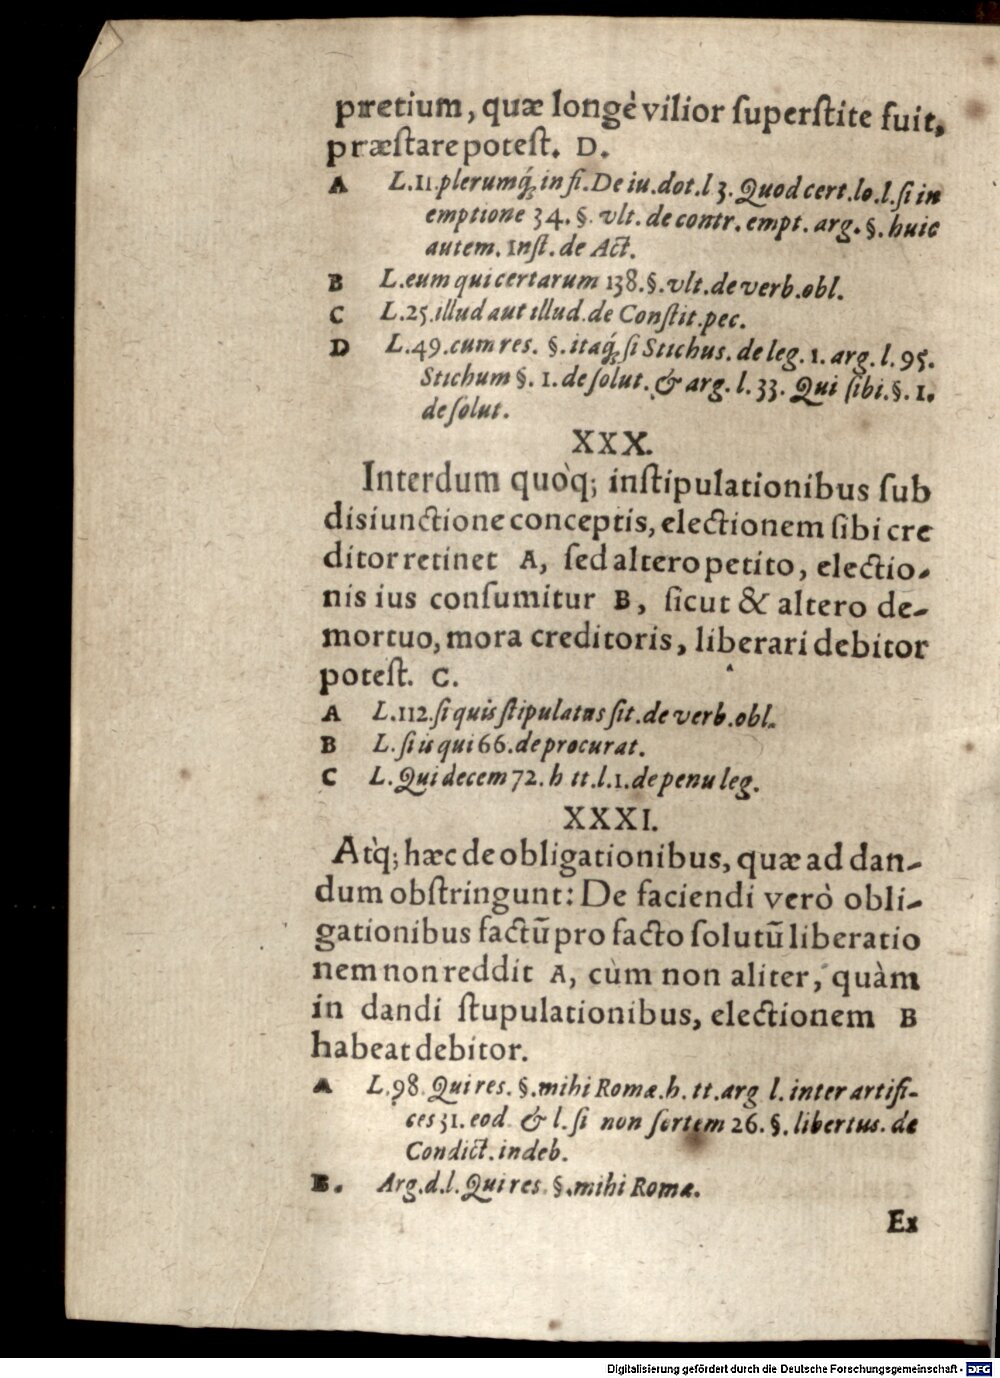 pretium, quæ longè vilior ſuperſtite fuit,
præſtare poteſt. D.
A L.11.plerumq́; in fi. De iu. dot. l 3. Quod cert. lo. l. ſi in
emptione 34. §. vlt. de contr. empt. arg. §. huic
autem. Inſt. de Act.
B L. eum qui certarum 138. §. vlt. de verb. obl.
C L.25. illud aut illud. de Conſtit. pec.
D L.49. cum res. §. itaq́; ſi Stichus. de leg. 1. arg. l. 95.
Stichum §. 1. de ſolut. & arg. l. 33. Qui ſibi. §. 1.
de ſolut.
XXX.
Interdum quòq; inſtipulationibus ſub
disiunctione conceptis, electionem ſibi cre
ditor retinet A, ſed altero petito, electio-
nis ius conſumitur B, ſicut & altero de-
mortuo, mora creditoris, liberari debitor
poteſt. C.
A L.112. ſi quis ſtipulatus ſit. de verb. obl.
B L. ſi is qui 66. de procurat.
C L. Qui decem 72. h tt. l. 1. de penu leg.
XXXI.
Atq̀; hæc de obligationibus, quæ ad dan-
dum obſtringunt: De faciendi verò obli-
gationibus factũ pro facto ſolutũ liberatio
nem non reddit A, cùm non aliter, quàm
in dandi ſtupulationibus, electionem B
habeat debitor.
A L.98. Qui res. §. mihi Romæ. h. tt. arg l. inter artifi-
ces 31. eod & l. ſi non ſortem 26. §. libertus. de
Condict. indeb.
B. Arg. d. l. Qui res. §. mihi Romæ.
Ex
Digitalisierung gefördert durch die Deutsche Forschungsgemeinschaft - DFG